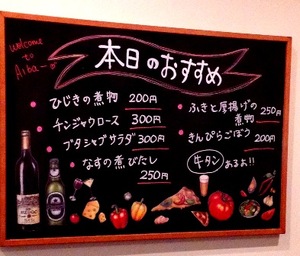 welcome
to
Aiba
本日のおすすめ
ひじきの煮物 200円
チンジャウロース 300円
ブタシャブサラダ 300円
なすの煮びたし
250円
ふきと厚揚げの
煮物 250円
きんぴらごぼう 200円
牛タン あるよ!!